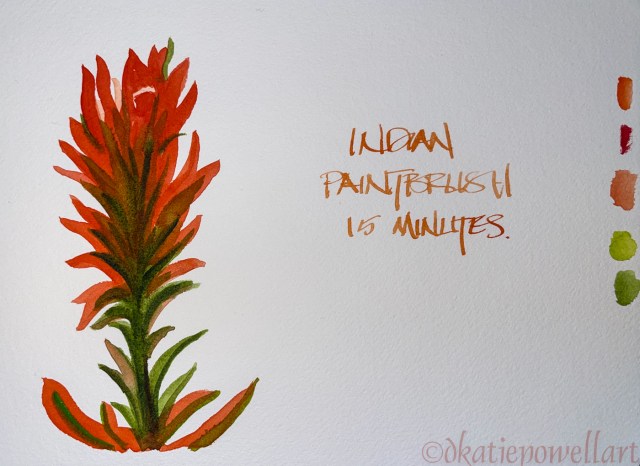 INDIAN
PAINTBRUSH
15 MINUTES.
©dkatiepowellart